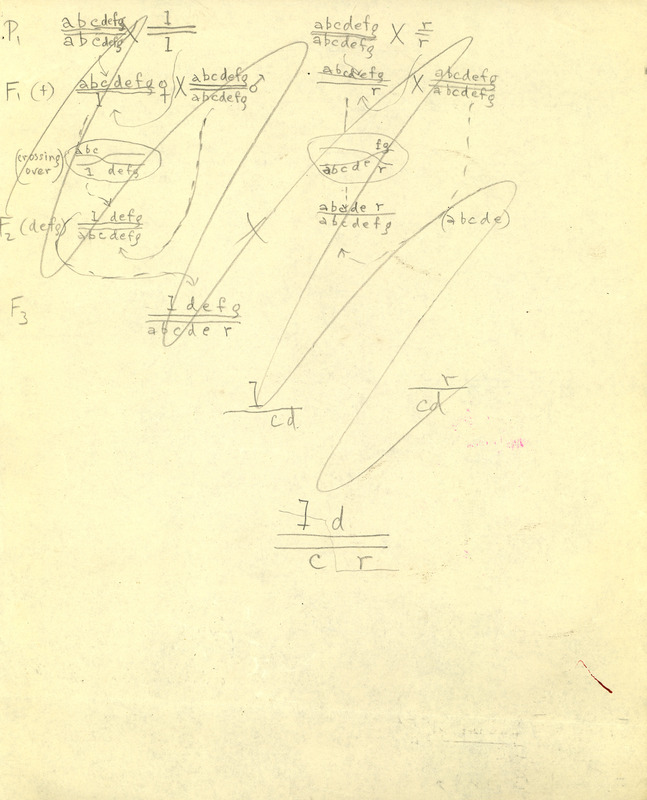 P1 abcdefg X l abcdefg X r
abcdefg l abcdefg r
F1 (+) abcdefg ♀ X abcdefg ♂ abcdefg X abcdefg
l abcdefg r abcdefg
(crossing over) abc fg
l defg abcde r
F2 (defg) l defg abcde r (abcde)
abcdefg abcdefg
F3 l defg
abcde r
l r
cd cd
l d
c r